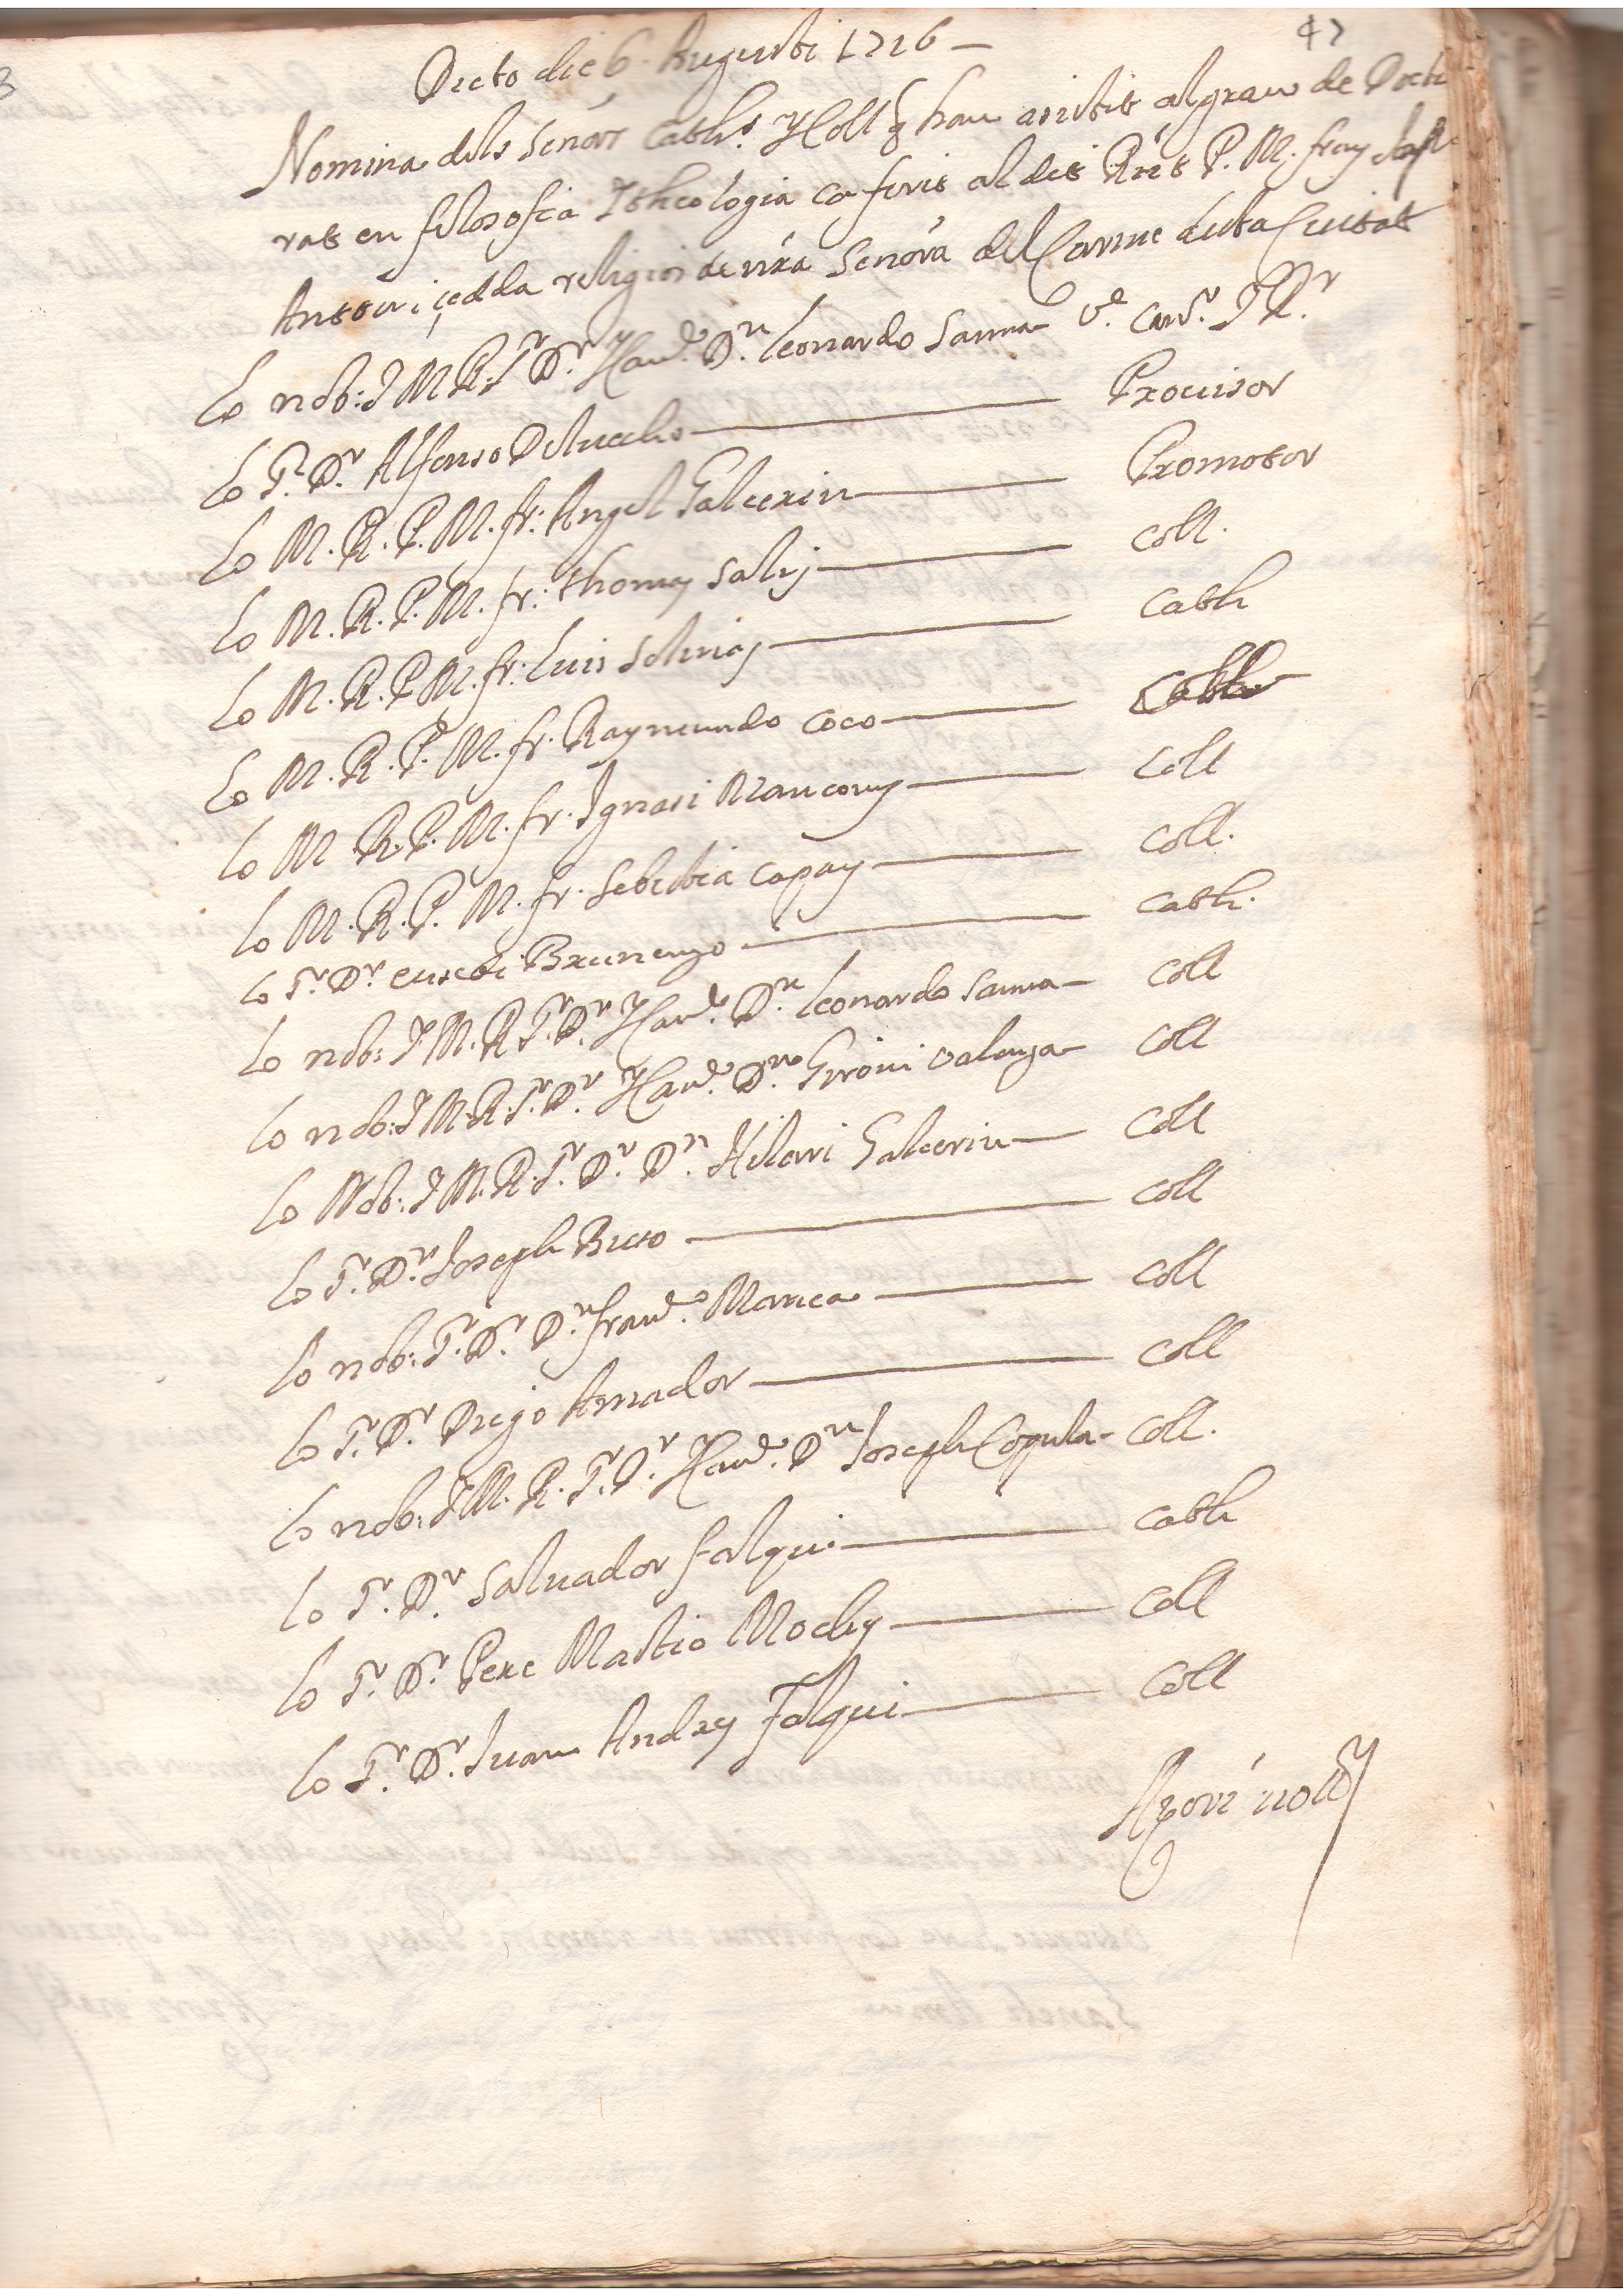 47
Dicto die 6 Augusti 1716
Nomina dels Senórs Cath.s y Coll q̃ han assistit al grau de Docto
rat en filosofia y theologia conferit al dit Rñt P. M. fray
Antoni de la religio de nr̃a Senóra del Carme desta Ciutat
Lo nob: y M. R. S.r D.r y Can.e D.n Leonardo Sanna V.e Can.r y R.r
Lo S.r D.r Alfonso Delvechio Provisor
Lo M. R. P. M. fr: Angel Galcerin Promotor
Lo M. R. P. M. fr: Thomas Salis coll.
Lo M. R. P. M. fr: Luis Solinas cath
Lo M. R. P. M. fr. Raymundo Coco cath
Lo M. R. P. M. fr. Ignasi Mancony coll
Lo M. R. P. M. fr. Sebestiá Capay coll.
Lo S.r D.r Eusebi Brunengo cath.
Lo nob: y M. R. S.r D.r y Can.e D.n Leonardo Sanna coll
Lo nob: y M. R. S.r D.r y Can.e D.n Gironi Valenza coll
Lo Nob: y M. R. S.r D.r D.n Hilari Galcerin coll
Lo S.r D.r Joseph Buso coll
Lo nob: S.r D.r D.n Fran.co Manca coll
Lo S.r D.r Diego Amador coll
Lo nob: y M. R. S.r D.r y Can.e D.n Joseph Copula coll.
Lo S.r D.r Salvador Falqui cath
Lo S.r D.r Pere Mastio Mochy coll
Lo S.r D.r Juan Andrey Falqui coll
Aporí not.